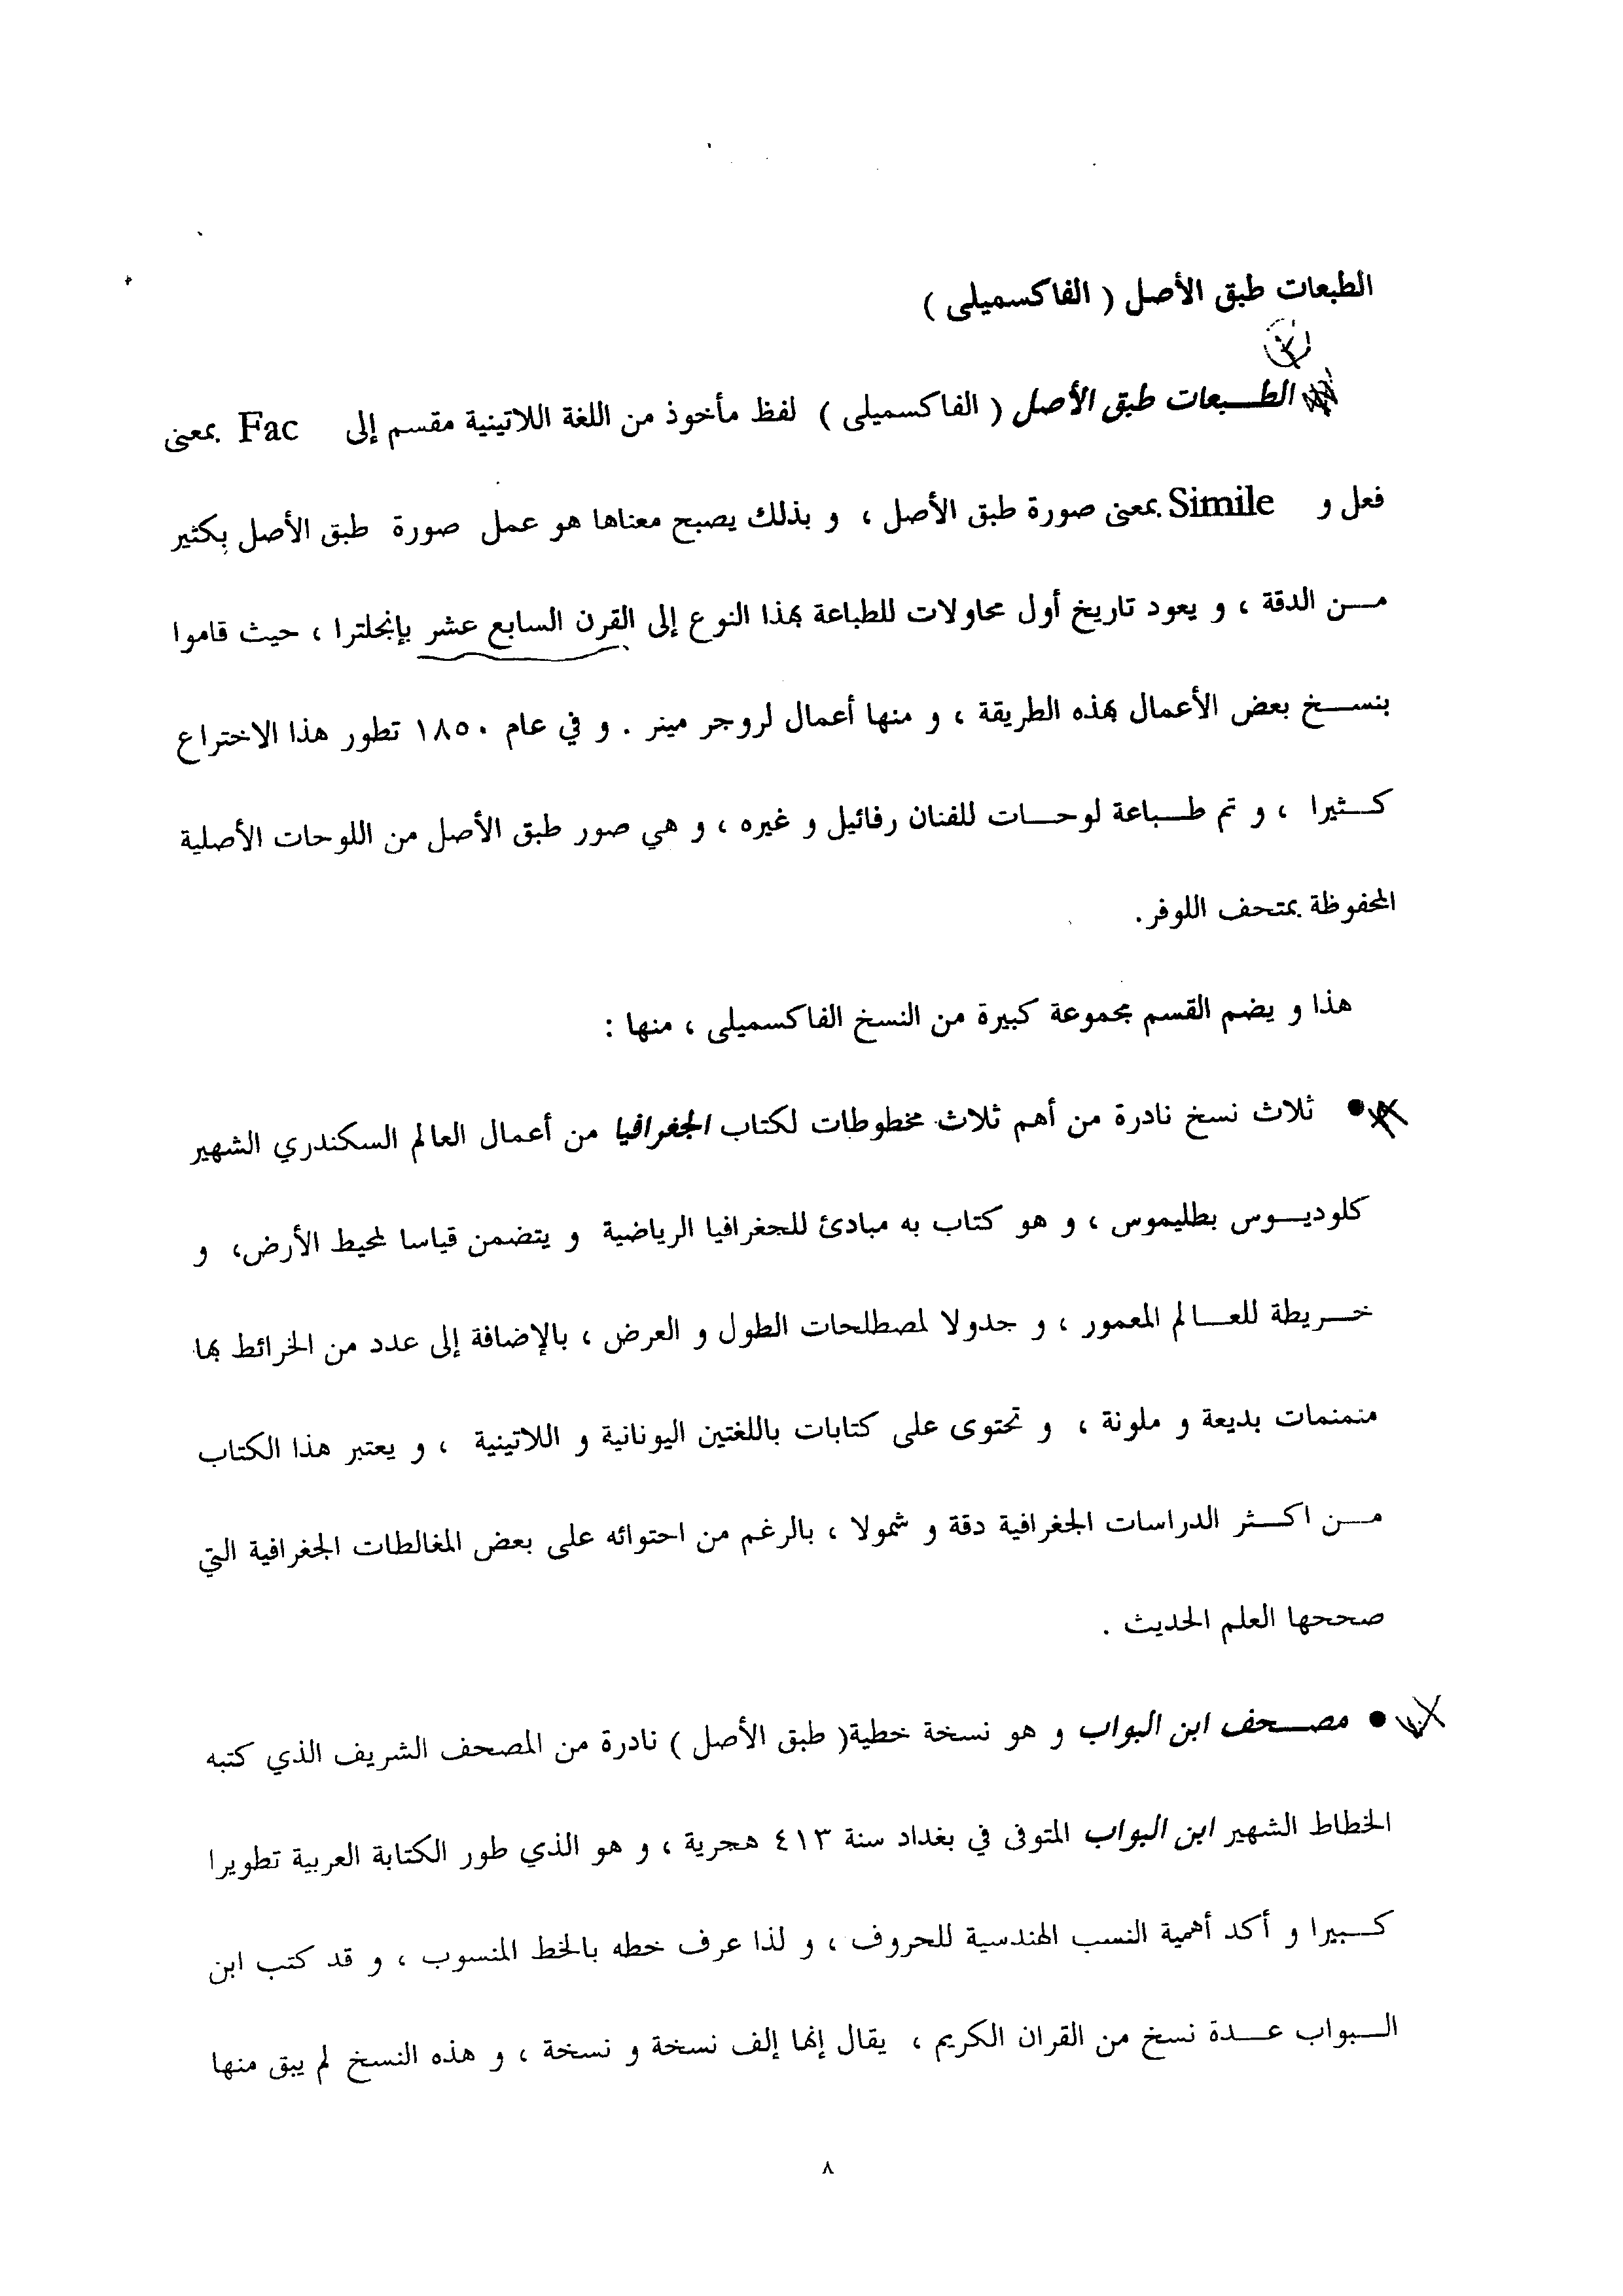 الطبعات طبق الأصل ( الفاكسميلى )
الطـــبعات طبق الأصل ( الفاكسميلى ) لفظ مأخوذ من اللغة اللاتينية مقسم إلى Fac بمعنى
فعل و Simile بمعنى صورة طبق الأصل ، و بذلك يصبح معناها هو عمل صورة طبق الأصل بكثير
مـــن الدقة ، و يعود تاريخ أول محاولات للطباعة بهذا النوع إلى القرن السابع عشر بإنجلترا ، حيث قاموا
بنســـخ بعض الأعمال بهذه الطريقة ، و منها أعمال لروجر مينر . و في عام ١٨٥٠ تطور هذا الاختراع
كـــثيرا ، و تم طـــباعة لوحـــات للفنان رفائيل و غيره ، و هي صور طبق الأصل من اللوحات الأصلية
المحفوظة بمتحف اللوفر.
هذا و يضم القسم مجموعة كبيرة من النسخ الفاكسميلى ، منها :
● ثلاث نسخ نادرة من أهم ثلاث مخطوطات لكتاب الجغرافيا من أعمال العالم السكندري الشهير
كلوديـــوس بطليموس ، و هو كتاب به مبادئ للجغرافيا الرياضية و يتضمن قياسا لمحيط الأرض، و
خـــريطة للعـــالم المعمور ، و جدولا لمصطلحات الطول و العرض ، بالإضافة إلى عدد من الخرائط بها
منمنمات بديعة و ملونة ، و تحتوى على كتابات باللغتين اليونانية و اللاتينية ، و يعتبر هذا الكتاب
مـــن اكـــثر الدراسات الجغرافية دقة و شمولا ، بالرغم من احتوائه على بعض المغالطات الجغرافية التي
صححها العلم الحديث .
● مصـــحف ابن البواب و هو نسخة خطية( طبق الأصل ) نادرة من المصحف الشريف الذي كتبه
الخطاط الشهير ابن البواب المتوفى في بغداد سنة ٤١٣ هجرية ، و هو الذي طور الكتابة العربية تطويرا
كـــبيرا و أكد أهمية النسب الهندسية للحروف ، و لذا عرف خطه بالخط المنسوب ، و قد كتب ابن
الـــبواب عـــدة نسخ من القران الكريم ، يقال إنها إلف نسخة و نسخة ، و هذه النسخ لم يبق منها
٨